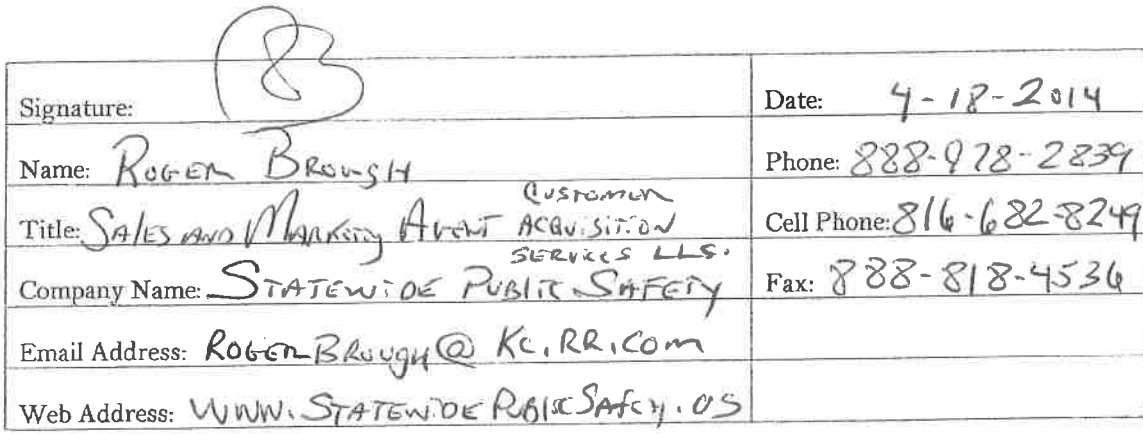 Signature: Date: 4-18-2014
Name: Roger Brough Phone: 888-978-2839
Customer
Title: Sales and Marketing Agent Acquisition Cell Phone: 816-682-8249
Services LLS.
Company Name: Statewide Public Safety Fax: 888-818-4536
Email Address: RogerBrough@Kc.RR.Com
Web Address: WWW.StatewidePublicSafety.US